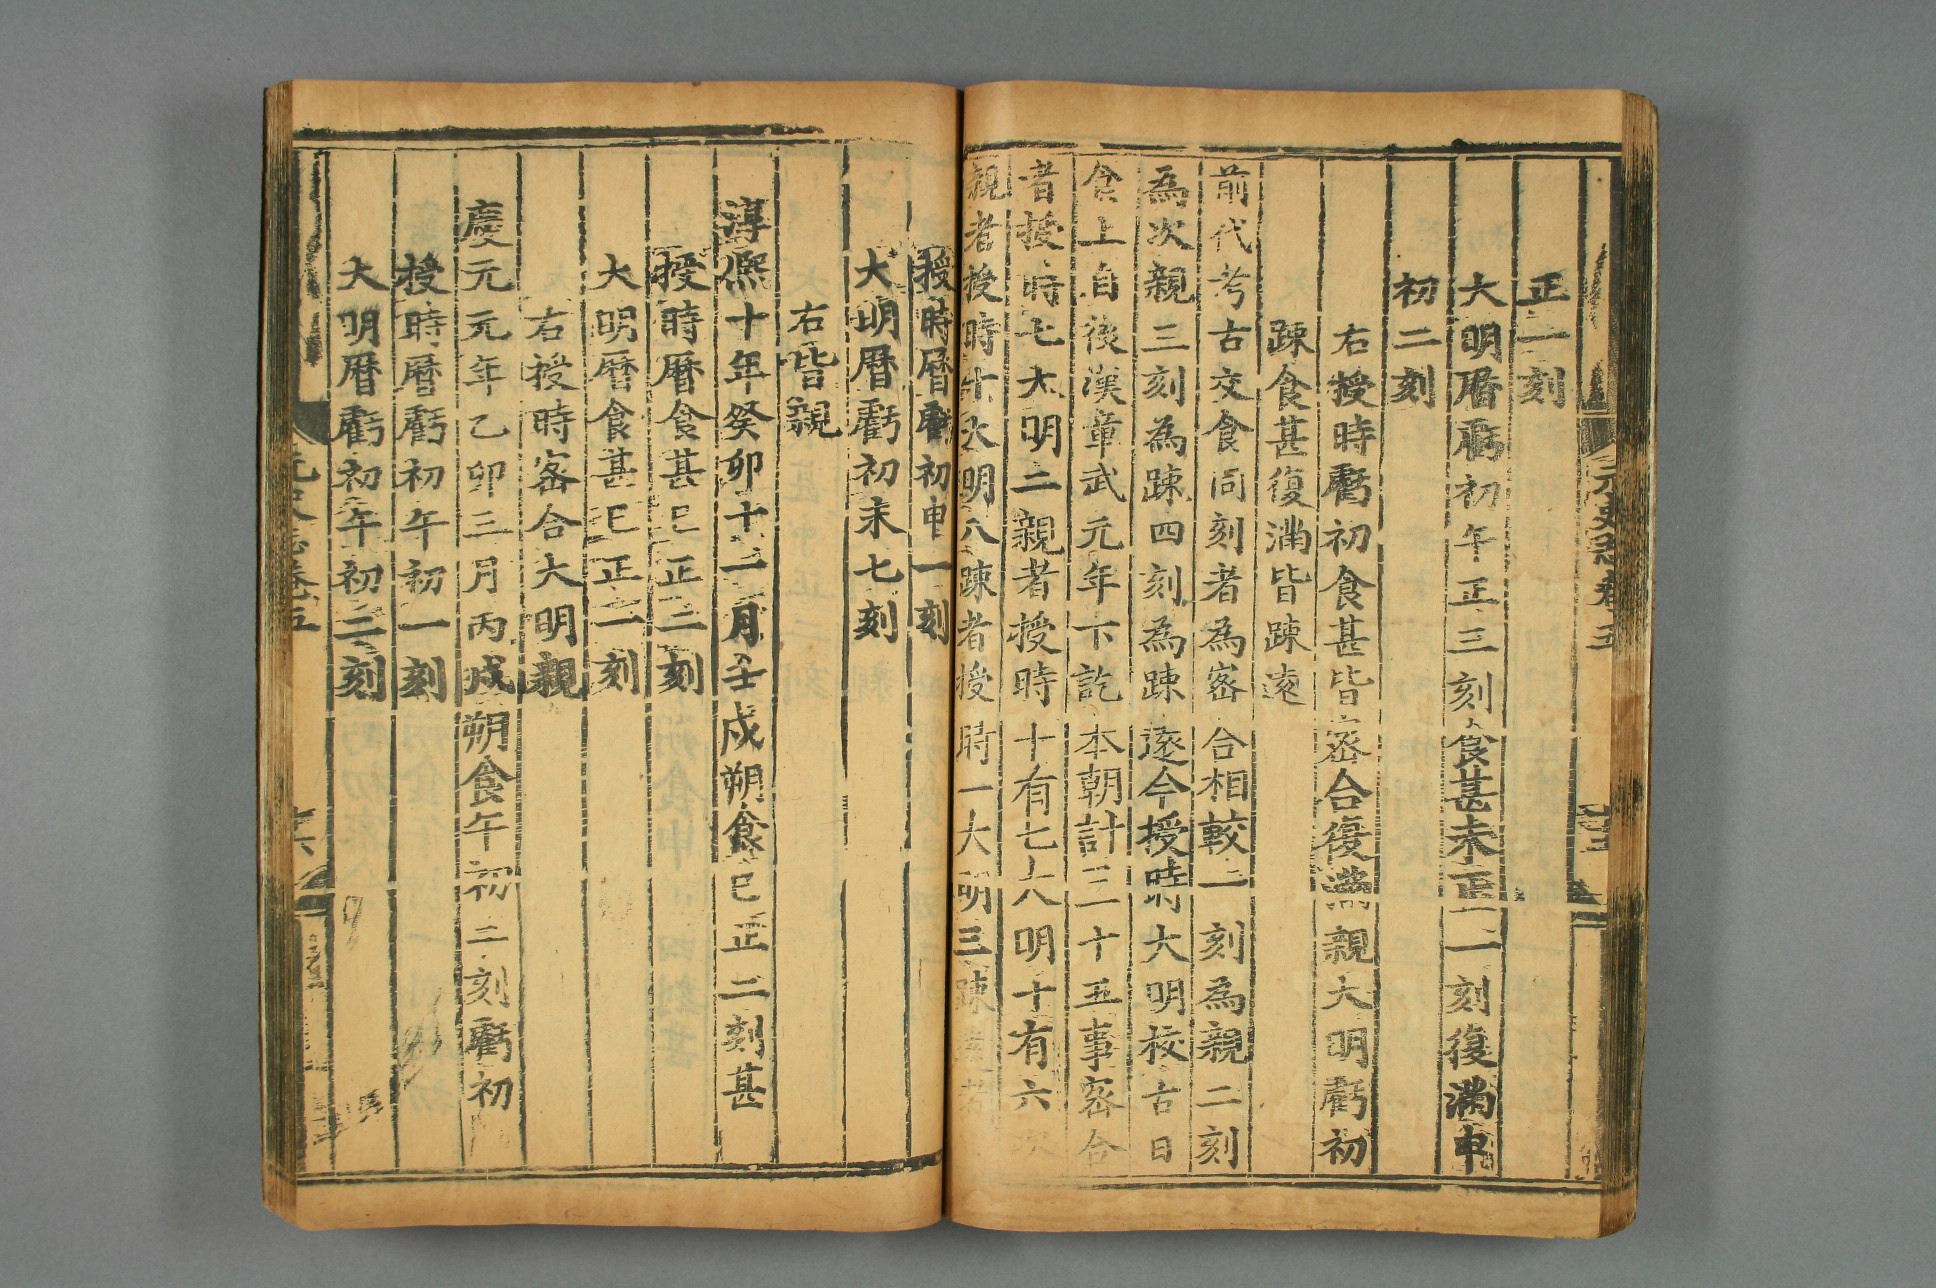 元史志卷五
正一刻
大明曆虧初午正三刻食甚未正一刻復滿申
初二刻
右授時虧初食甚皆密合復滿親大明虧初
踈食甚復滿皆踈遠
前代考古交食同刻者為密合相較一刻為親二刻
為次親三刻為踈四刻為踈遠今授時大明校古日
食上自後漢章武元年下訖本朝計三十五事密合
者授時七大明二親者授時十有七大明十有六次
親者授時十大明八踈者授時一大明三踈遠者
授時曆虧初申一刻
大明曆虧初未七刻
右皆親
淳熈十年癸卯十一月壬戌朔食巳正二刻甚
授時曆食甚巳正二刻
大明曆食甚巳正一刻
右授時密合大明親
慶元元年乙卯三月丙戌朔食午初二刻虧初
授時曆虧初午初一刻
大明曆虧初午初二刻
元史志卷五
十六